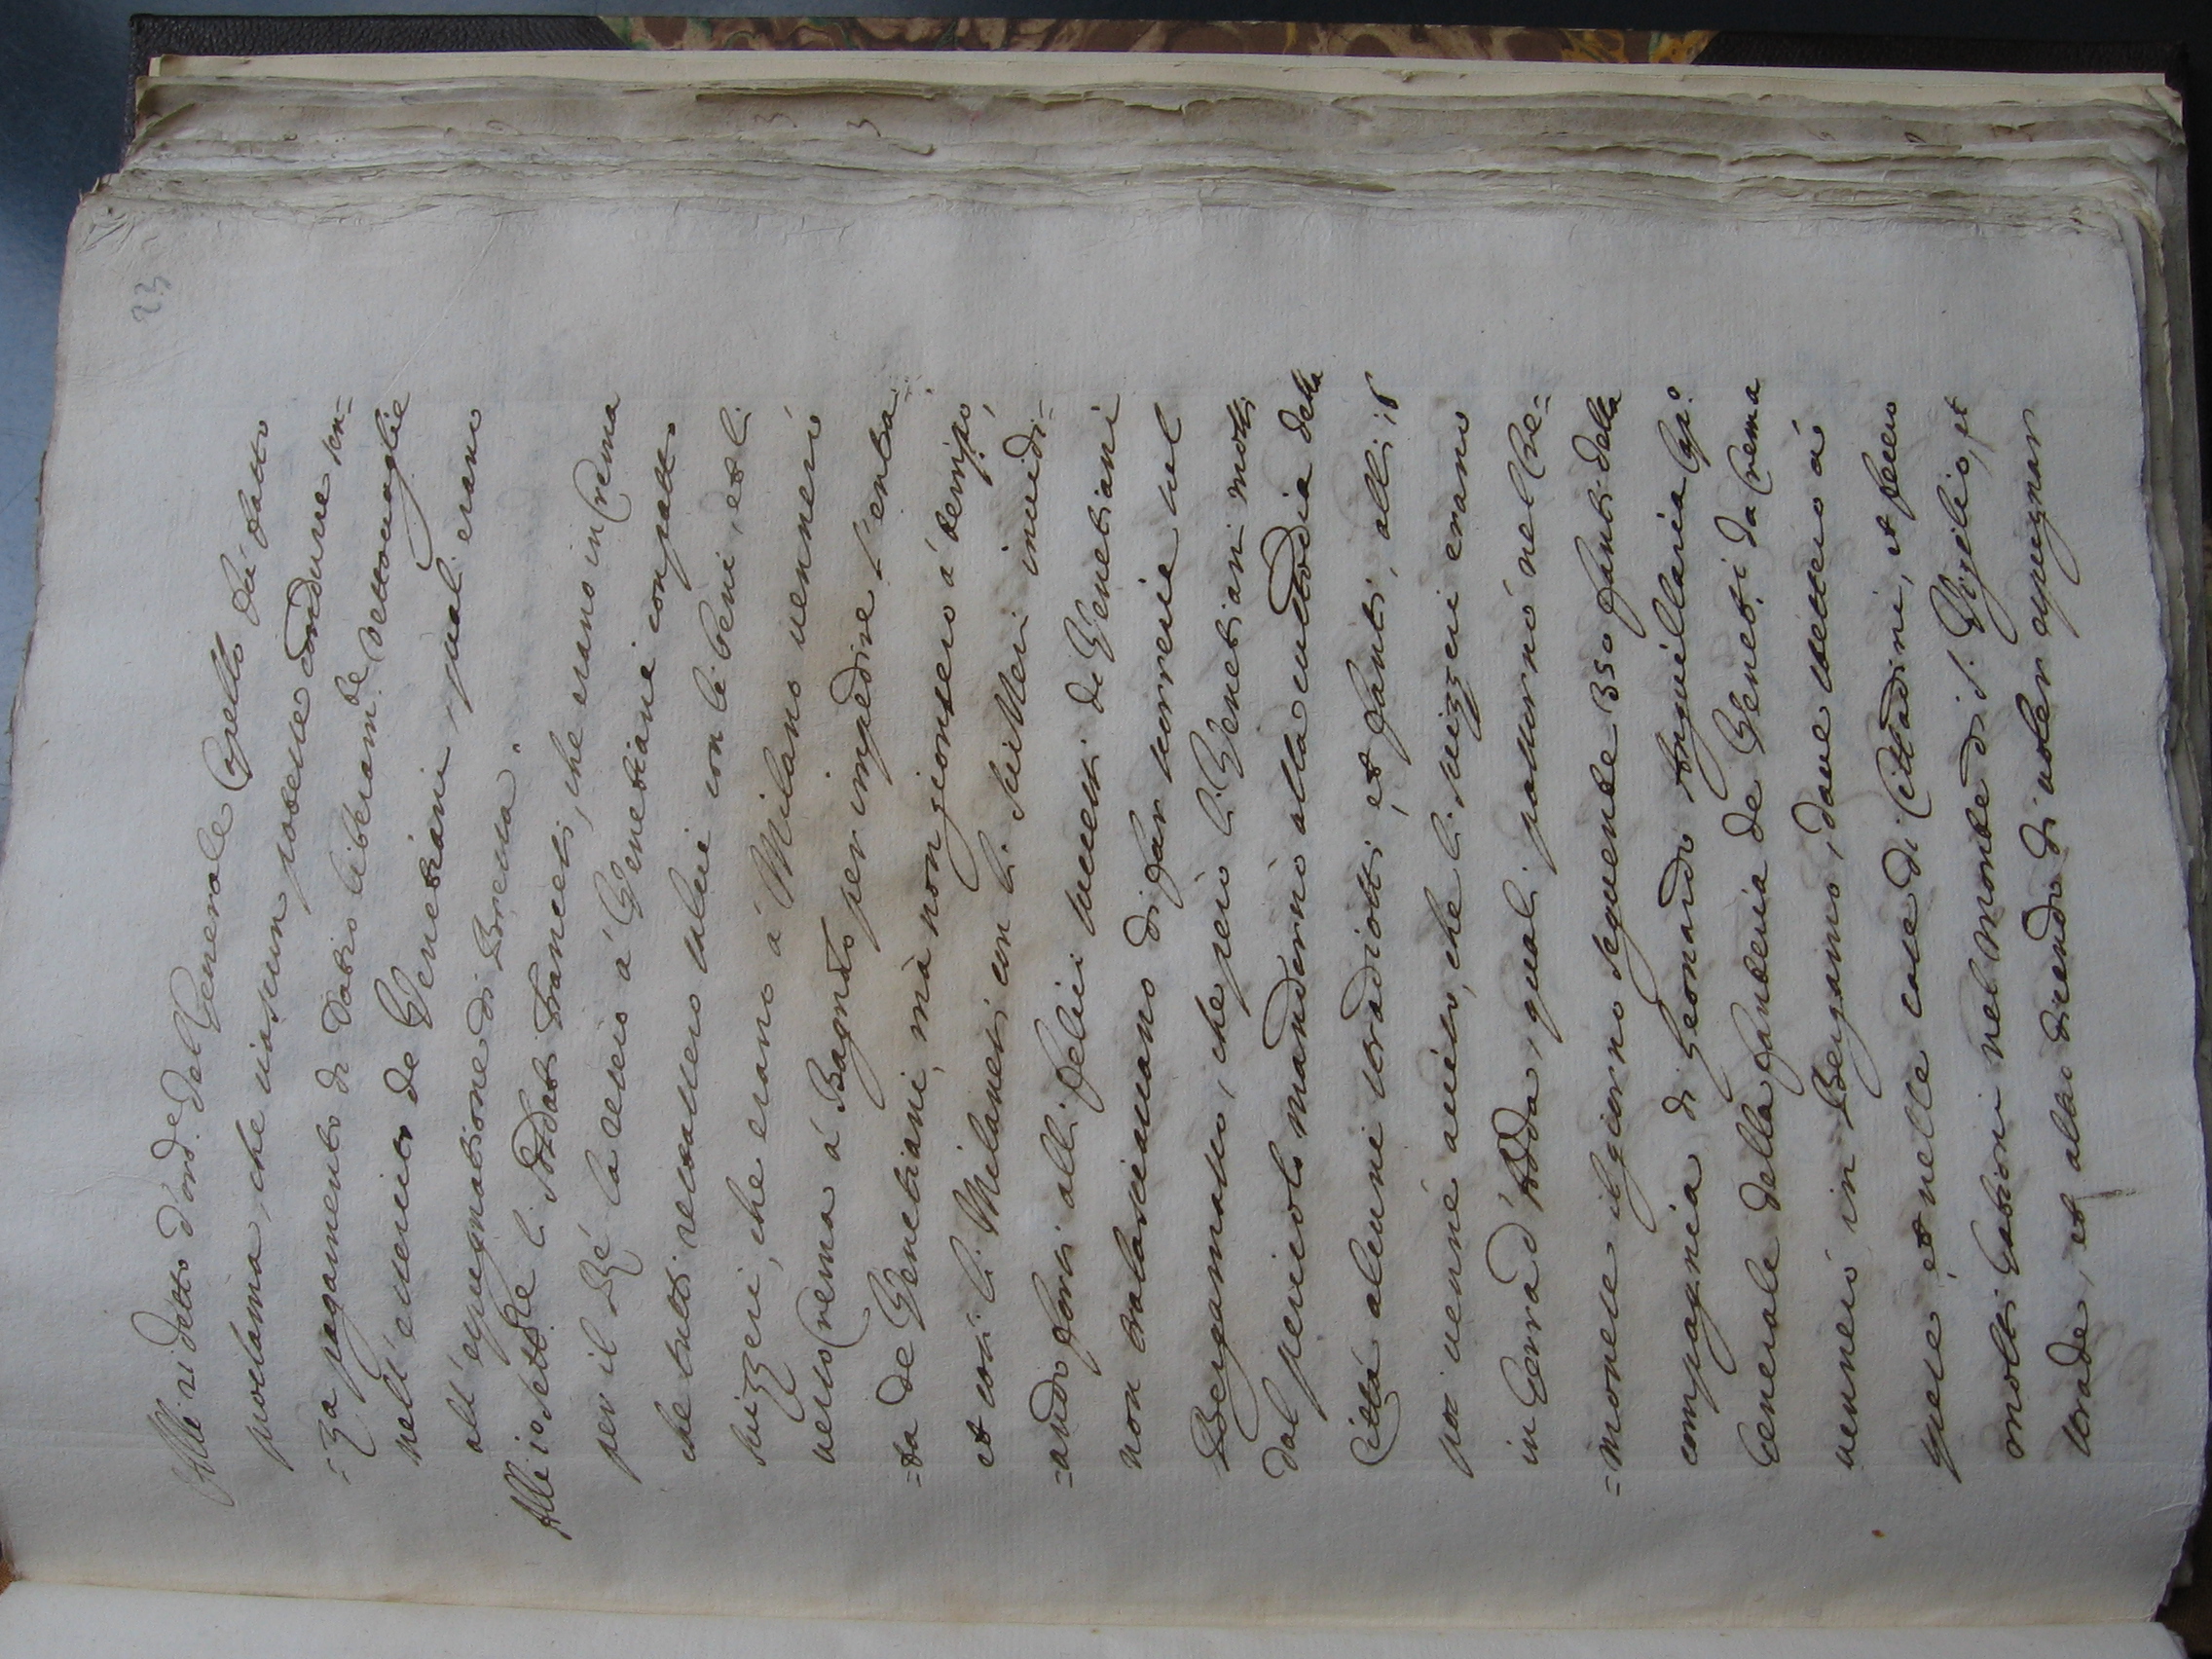 23
Alli 21 detto d'ord.e del Generale Capello fù fatto
proclama, che niassun potesse condurre sen=
=za pagamento di Datio liberam.te vettovaglie
nell'essercito de Venetiani, quali erano
all'espugnatione di Bressa.
Alli 10 sett.bre li soldati Francesi, che erano in Crema
per il Rè la desero à Venetiani con patto
che tutti restassero salvi con li beni, et li
suizzeri, che erano à Milano vennero
verso Crema à Bagnato per impedire l'entra=
=ta de Venetiani, mà non gionsero à tempo,
et così li Milanesi con li suizzeri invidi=
=ando forsi alli felici successi di Venetiani
non tralasciavano di far scorrerie sul
Bergamasco, che perciò li Venetiani mossi
dal pericolo mandorno alla custodia della
Città alcuni stradiotti, et fanti, alli 18
poi venne aviso, che li suizzeri erano
in Gerra d'Adda, quali passorno nel Cre=
=monese il giorno seguente 350 fanti della
compagnia di Leonardo Anguillaria Cap.o
Generale della fanteria de Veneti da Crema
vennero in Bergamo, dove stettero à
spese, et nelle case di Cittadini, et fecero
molti Gabioni nel monte di S. Vigilio, et
strade, et altro dicendo di voler espugnar